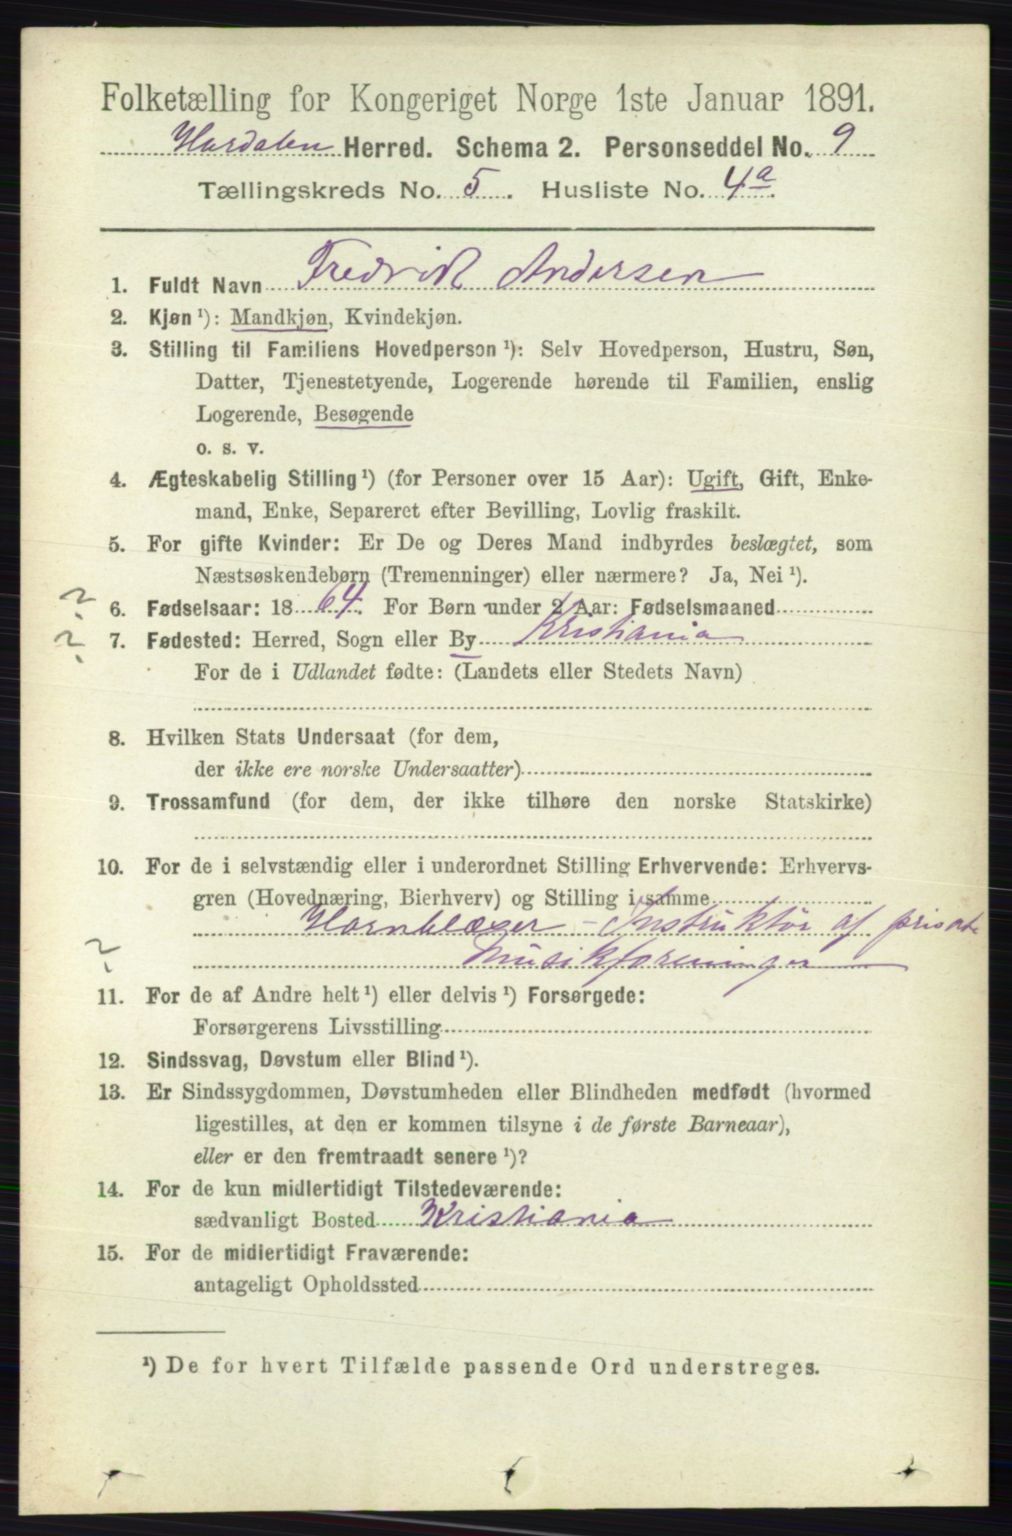 Folketælling for Kongeriget Norge 1ste Januar 1891.
Hurdalen Herred. Schema 2. Personseddel No. 9
Tællingskreds No. 5. Husliste No. 4a.
1. Fuldt Navn Fredrik Andersen
2. Kjøn ¹): Mandkjøn, Kvindekjøn.
3. Stilling til Familiens Hovedperson ¹): Selv Hovedperson, Hustru, Søn,
Datter, Tjenestetyende, Logerende hørende til Familien, enslig
Logerende, Besøgende
o. s. v.
4. Ægteskabelig Stilling ¹) (for Personer over 15 Aar): Ugift, Gift, Enke-
mand, Enke, Separeret efter Bevilling, Lovlig fraskilt.
5. For gifte Kvinder: Er De og Deres Mand indbyrdes beslægtet, som
Næstsøskendebørn (Tremenninger) eller nærmere? Ja, Nei ¹).
? 6. Fødselsaar: 1864. For Børn under 2 Aar: Fødselsmaaned
? 7. Fødested: Herred, Sogn eller By Kristiania
For de i Udlandet fødte: (Landets eller Stedets Navn)
8. Hvilken Stats Undersaat (for dem,
der ikke ere norske Undersaatter)
9. Trossamfund (for dem, der ikke tilhøre den norske Statskirke)
10. For de i selvstændig eller i underordnet Stilling Erhvervende: Erhvervs-
gren (Hovednæring, Bierhverv) og Stilling i samme
Hornblæser - Instruktør af private
? Musikforeninger
11. For de af Andre helt ¹) eller delvis ¹) Forsørgede:
Forsørgerens Livsstilling
12. Sindssvag, Døvstum eller Blind ¹).
13. Er Sindssygdommen, Døvstumheden eller Blindheden medfødt (hvormed
ligestilles, at den er kommen tilsyne i de første Barneaar),
eller er den fremtraadt senere ¹)?
14. For de kun midlertidigt Tilstedeværende:
sædvanligt Bosted Kristiania
15. For de midlertidigt Fraværende:
antageligt Opholdssted
¹) De for hvert Tilfælde passende Ord understreges.